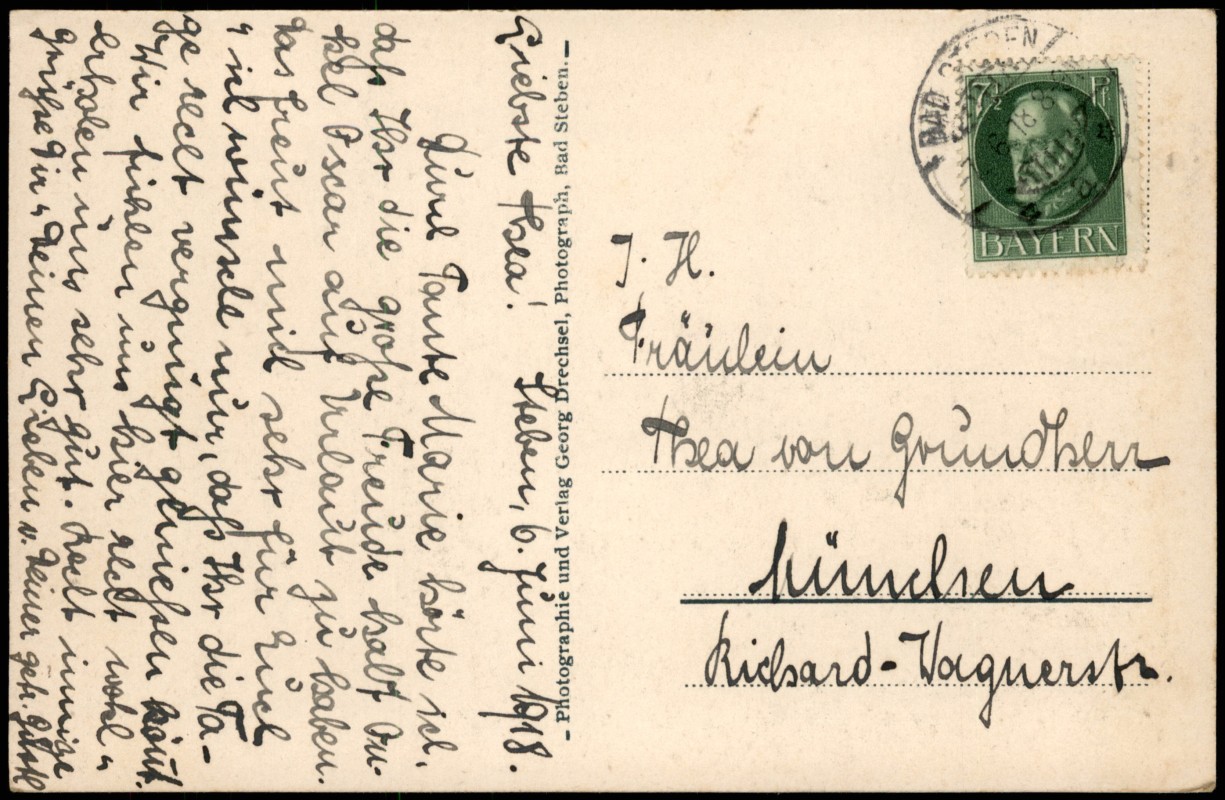 Liebste Thea! Steben, 6. Juni 1918.
Durch Tante Marie hörte ich,
daß Ihr die große Freude habt On-
kel Oscar auf Urlaub zu haben.
Das freut mich sehr für Euch
u. ich wünsche nur, daß Ihr die Ta-
ge recht vergnügt genießen könnt.
Wir fühlen uns hier recht wohl u.
erholen uns sehr gut. Recht innige
Grüße Dir u. Deinen Lieben v. Deiner
- Photographie und Verlag Georg Drechsel, Photograph, Bad Steben. -
BAD STEBEN
7½ Pf
BAYERN
I. H.
Fräulein
Thea von Grundherr
München
Richard-Wagnerstr.